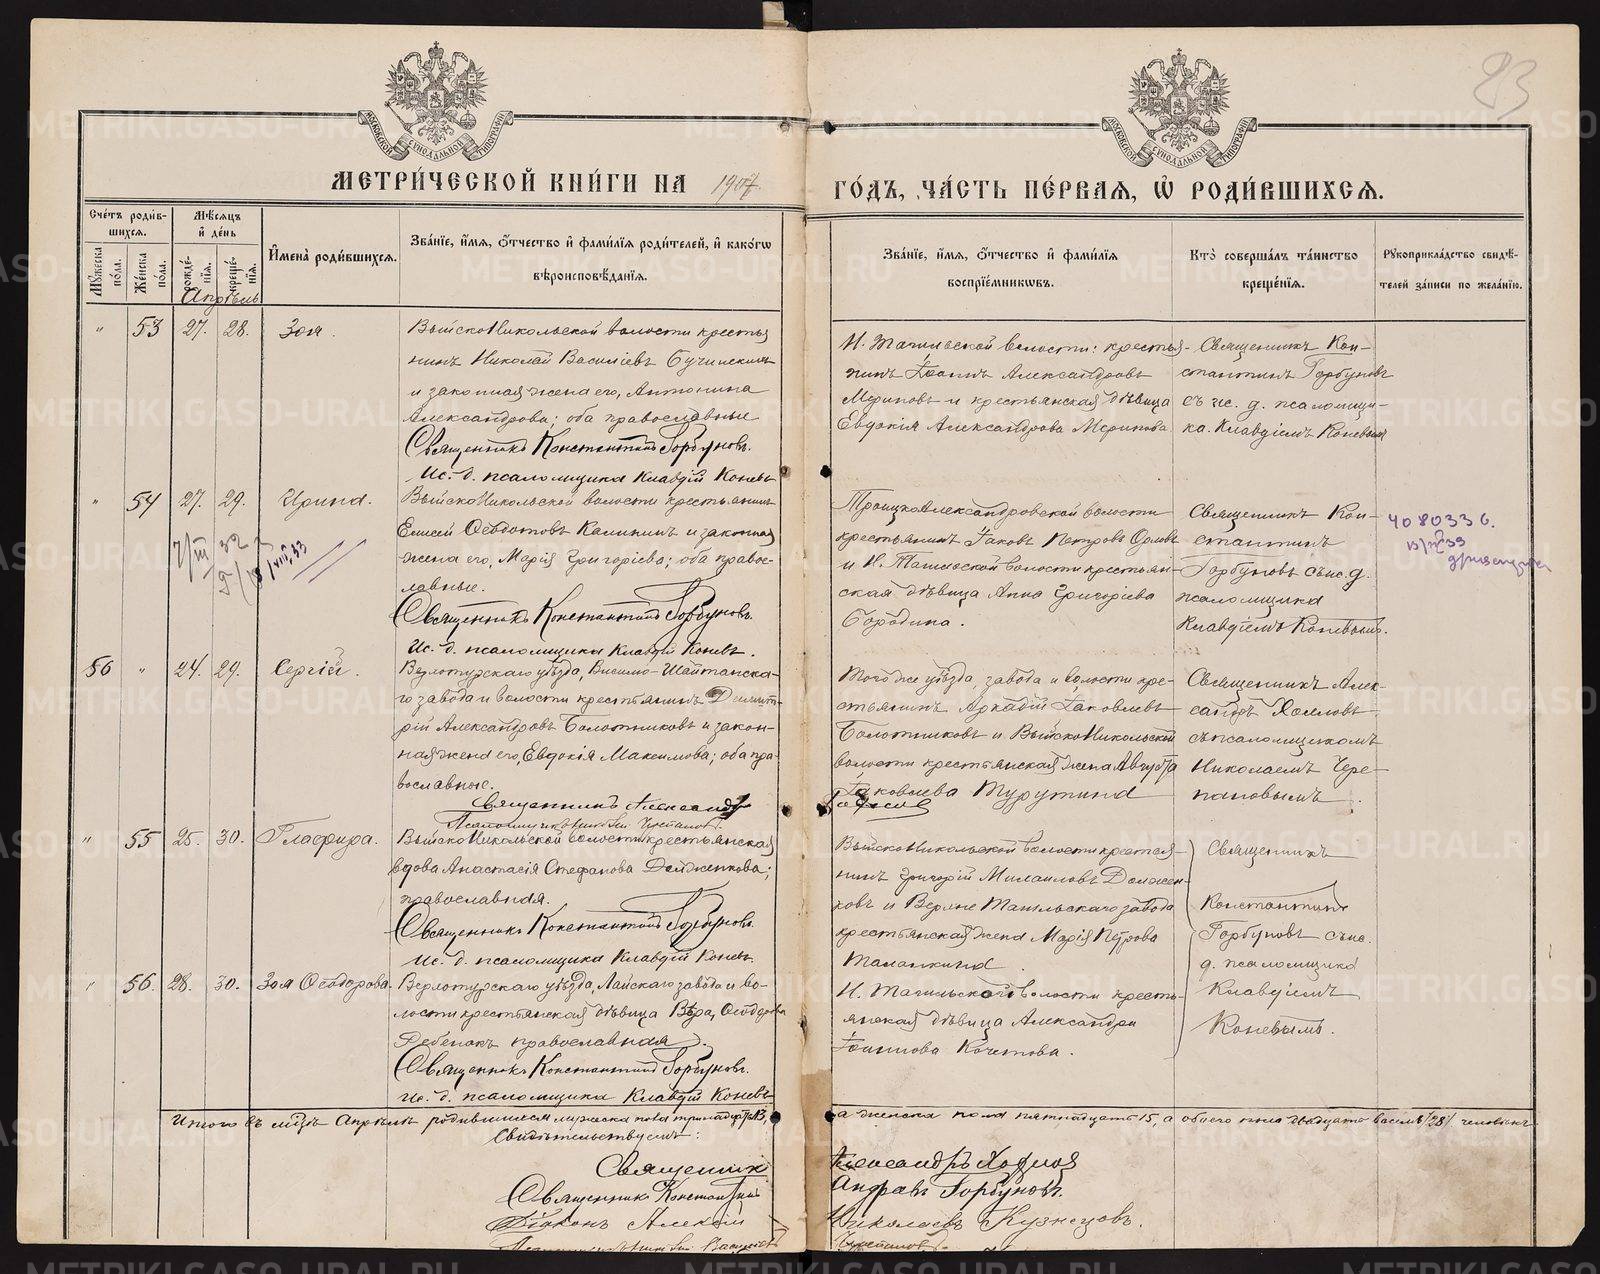 83
МОСКОВСКОЙ СУНОДАЛЬНОЙ ТИПОГРАФІИ
МОСКОВСКОЙ СУНОДАЛЬНОЙ ТИПОГРАФІИ
МЕТРИ́ЧЕСКОЙ КНИ́ГИ НА 1907
ГО́ДЪ, ЧА́СТЬ ПЕ́РВАЯ, Ѡ҆ РОДИ́ВШИХСЯ.
Сче́тъ роди́вшихся.
Мꙋ́жеска по́ла.
Же́нска по́ла.
Мѣ́сяцъ и҆ де́нь
рожде́нїѧ.
креще́нїѧ.
И҆мена̀ роди́вшихся.
Зва́нїе, и҆́мя, ѻ҆́тчество и҆ фами́лїя роди́телей, и҆ како́гѡ вѣроисповѣ́данїя.
Зва́нїе, и҆́мя, ѻ҆́тчество и҆ фами́лїя воспрїе́мникѡвъ.
Кто̀ соверша́лъ та́инство креще́нїя.
Рꙋкоприкла́дство свидѣ́телей за́писи по жела́нїю.
Апрѣль
" 53 27. 28. Зоя.
Выйско Никольской волости крестья
нинъ Николай Василіевъ
и законная жена его, Антонина
Александрова; оба православные
Священникъ Константинъ Горбуновъ.
Ис. д. псаломщика Клавдій Коневъ
Н. Тагильской волости: крестья-
нинъ Іоаннъ Александровъ
Мериновъ и крестьянская дѣвица
Евдокія Александрова Меринова
Священникъ Кон-
стантинъ Горбуновъ
съ ис. д. псаломщи-
ка. Клавдіемъ Коневымъ
" 54 27. 29. Ирина.
Выйско Никольской волости крестьянинъ
Елисей Ѳеодотовъ Калининъ и законная
жена его, Марія Григоріева; оба правос-
лавные.
Священникъ Константинъ Горбуновъ.
Ис. д. псаломщика Клавдій Коневъ.
Троицко Александровской волости
крестьянинъ Іаковъ Петровъ Орловъ
и Н. Тагильской волости крестьян-
ская дѣвица Анна Григоріева
Бородина.
Священникъ Кон-
стантинъ
Горбуновъ съ ис. д.
псаломщика
Клавдіемъ Коневымъ.
4080336.
56 " 24. 29. Сергій.
Верхотурскаго уѣзда, Висимо-Шайтанска-
го завода и волости крестьянинъ Димит-
рій Александровъ Болотниковъ и закон-
ная жена его, Евдокія Максимова; оба пра-
вославные.
Священникъ Александръ
Того же уѣзда, завода и волости кре-
стьянинъ Аркадій Іаковлевъ
Болотниковъ и Выйско Никольской
волости крестьянская жена Августа
Іаковлева Турутина
Священникъ Алек-
сандръ Хохловъ
съ псаломщикомъ
Николаемъ Чере-
пановымъ.
" 55 25. 30. Глафира.
Выйско Никольской волости крестьянская
вдова Анастасія Стефанова
православная.
Священникъ Константинъ Горбуновъ.
Ис. д. псаломщика Клавдій Коневъ.
Выйско Никольской волости крестья-
нинъ Григорій Михаиловъ Должен-
ковъ и Верхне Тагильскаго завода
крестьянская жена Марія Петрова
Маланкина
Священникъ
Константинъ
Горбуновъ съ ис.
д. псаломщика
Клавдіемъ
Коневымъ.
" 56. 28. 30. Зоя Ѳеодорова.
Верхотурскаго уѣзда, Лайскаго завода и во-
лости крестьянская дѣвица Вѣра Ѳеодорова
Ребенокъ православная.
Священникъ Константинъ Горбуновъ.
Ис. д. псаломщика Клавдій Коневъ
Н. Тагильской волости кресть-
янская дѣвица Александра
Іоаннова Кочетова.
Итого въ мцѣ Апрѣлѣ родившихся мужеска пола тринадцать 13,
а женска пола пятнадцать 15, а обоего пола двадцать восемь /28/ человѣкъ
Свидѣтельствуемъ:
Священникъ Александръ Хохловъ
Священникъ Константинъ Горбуновъ.
Діаконъ Алексій Кузнецовъ.
METRIKI.GASO-URAL.RU